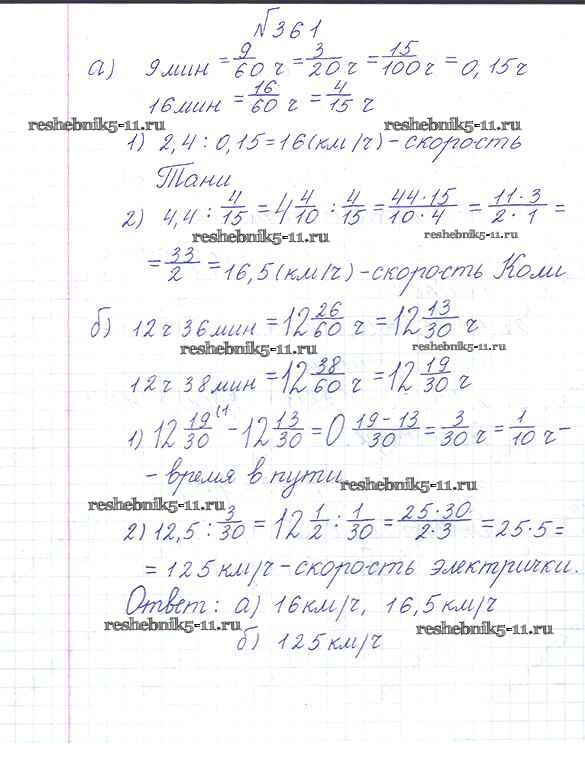 №361
а) 9 мин = 9/60 ч = 3/20 ч = 15/100 ч = 0,15 ч
16 мин = 16/60 ч = 4/15 ч
reshebnik5-11.ru reshebnik5-11.ru
1) 2,4 : 0,15 = 16 (км/ч) - скорость
Тани
2) 4,4 : 4/15 = 4 4/10 : 4/15 = 44·15/10·4 = 11·3/2·1 =
reshebnik5-11.ru reshebnik5-11.ru
= 33/2 = 16,5 (км/ч) - скорость Коли
б) 12 ч 36 мин = 12 26/60 ч = 12 13/30 ч
reshebnik5-11.ru reshebnik5-11.ru
12 ч 38 мин = 12 38/60 ч = 12 19/30 ч
1) 12 19/30 (1 - 12 13/30 = 0 19-13/30 = 3/30 ч = 1/10 ч -
- время в пути
reshebnik5-11.ru
reshebnik5-11.ru
2) 12,5 : 3/30 = 12 1/2 : 1/30 = 25·30/2·3 = 25·5 =
= 125 км/ч - скорость электрички.
Ответ: а) 16 км/ч, 16,5 км/ч
reshebnik5-11.ru reshebnik5-11.ru
б) 125 км/ч